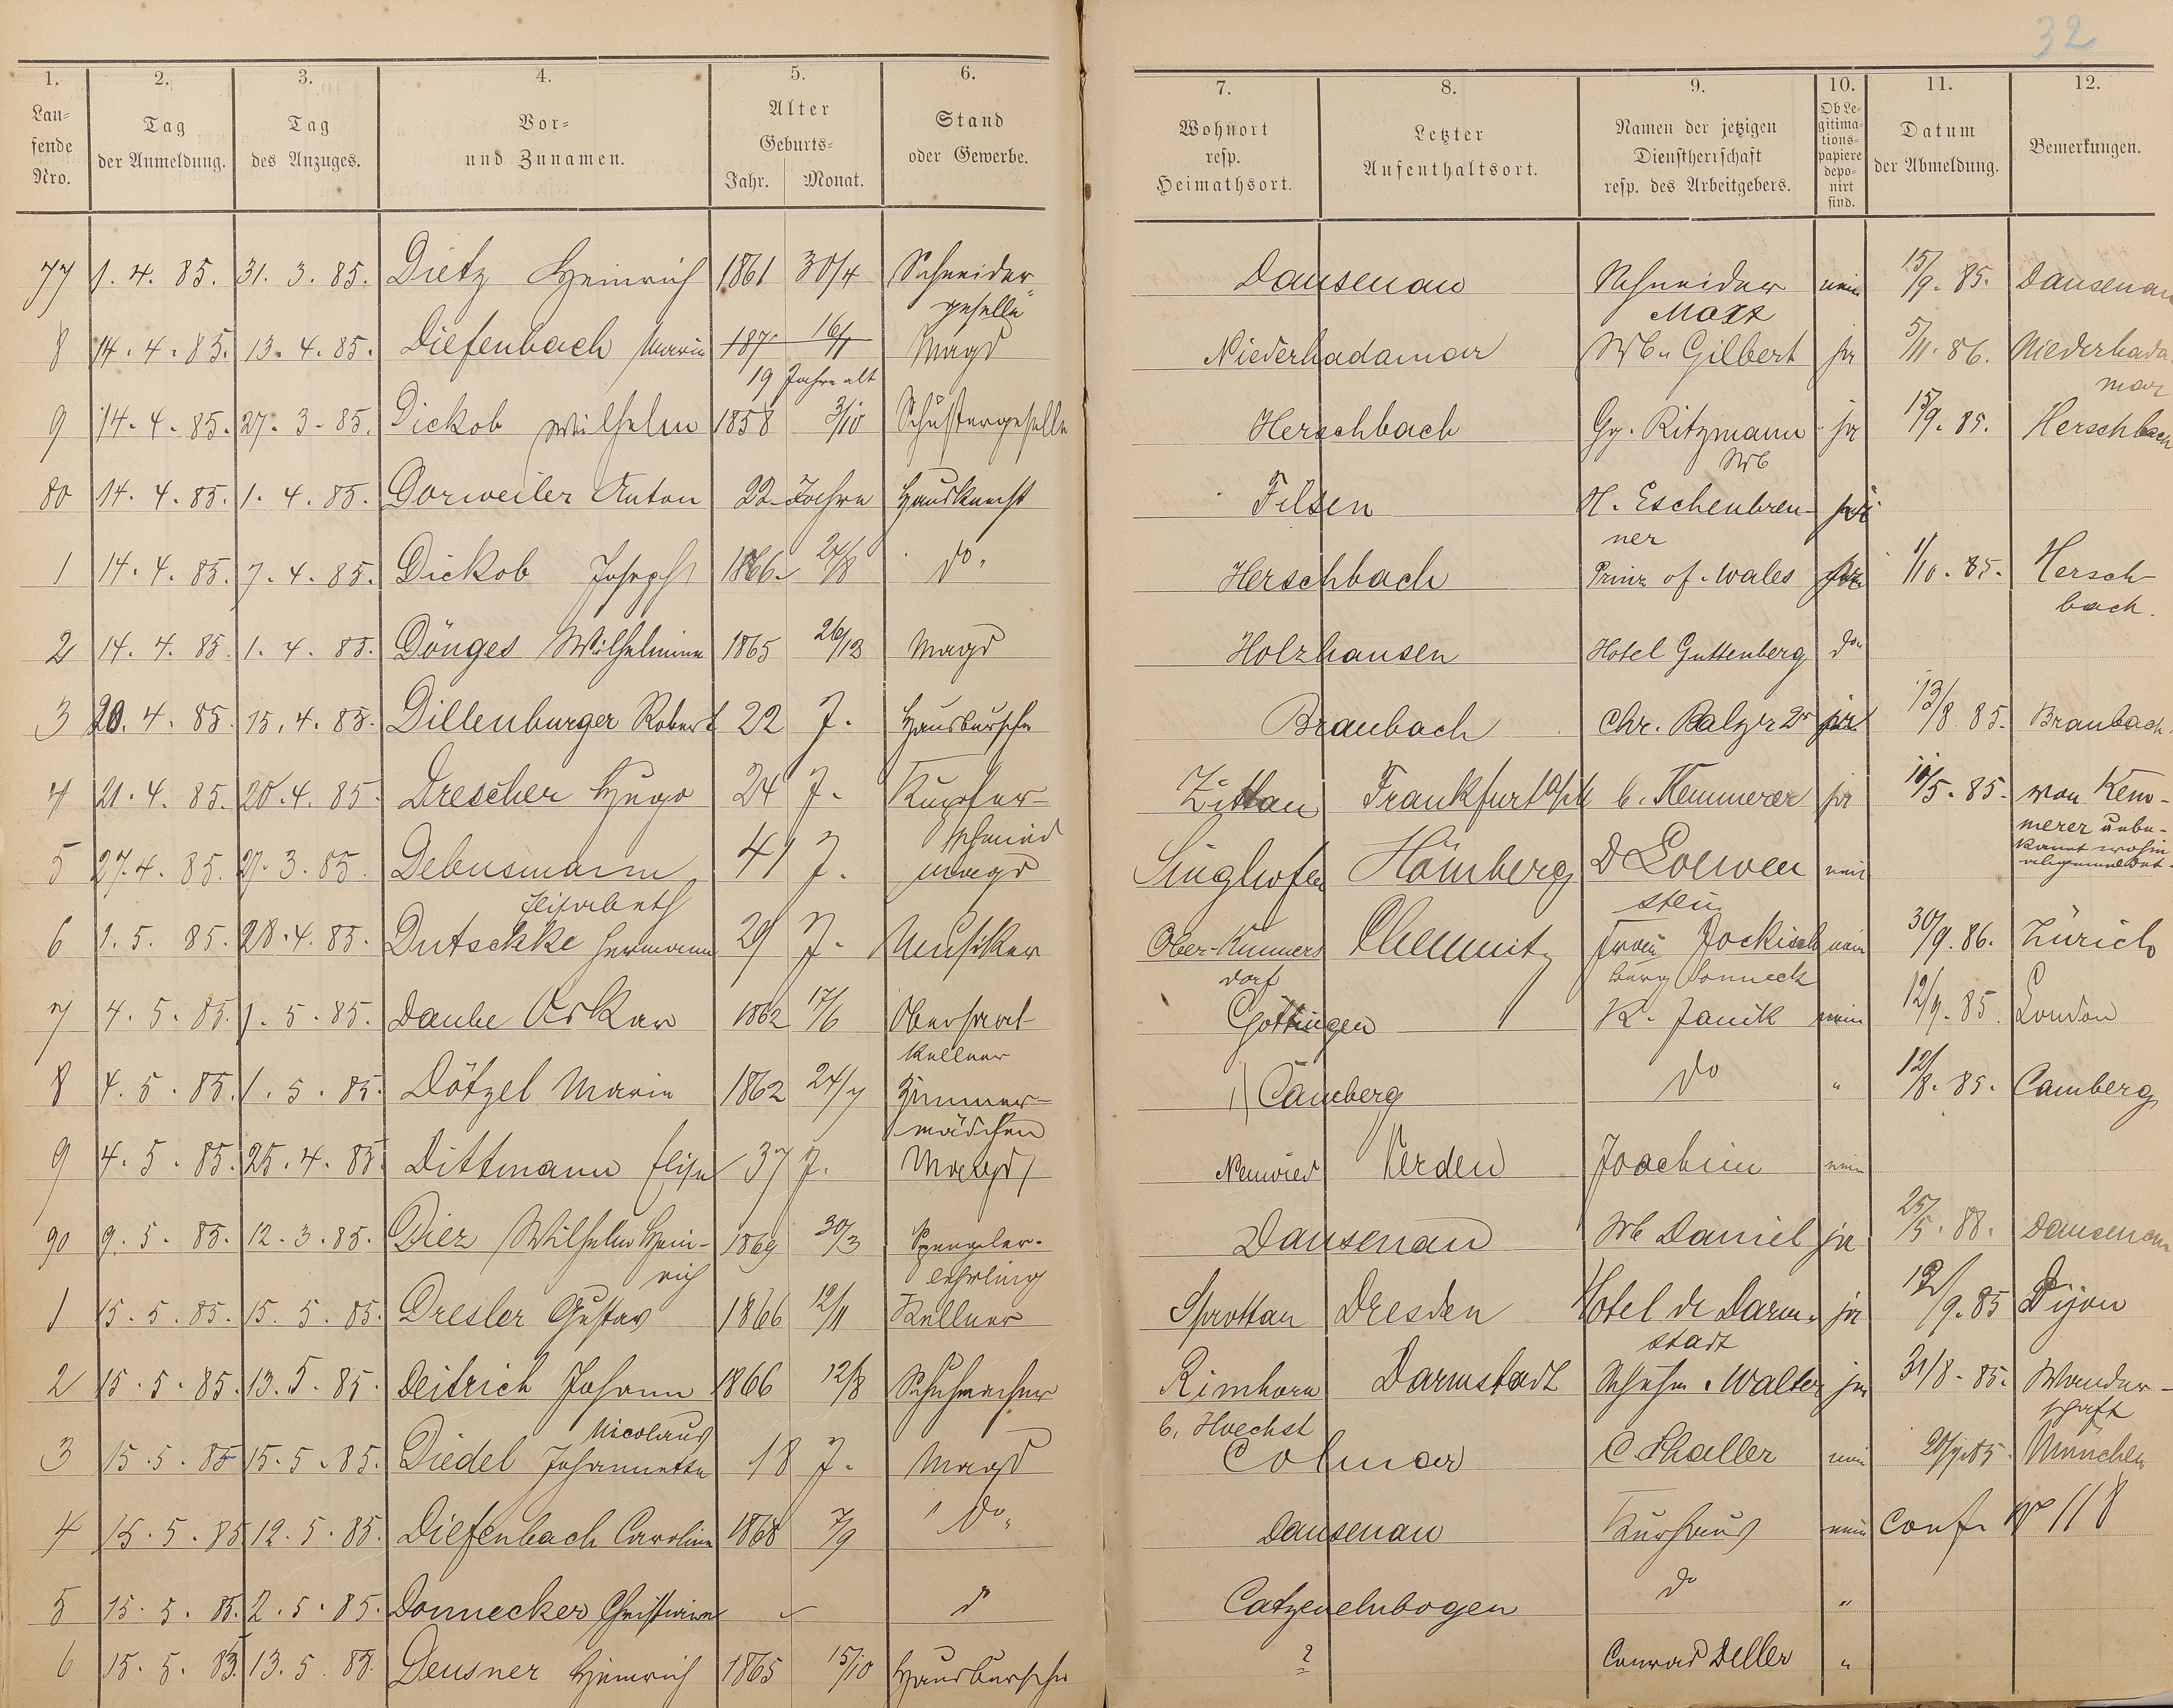 32
1. 2. 3. 4. 5. 6. 7. 8. 9. 10. 11. 12.
Lau-
fende
Nro.
Tag
der Anmeldung.
Tag
des Anzuges.
Vor-
und Zunamen.
Alter
Geburts-
Jahr. Monat.
Stand
oder Gewerbe.
Wohnort
resp.
Heimathsort.
Letzter
Aufenthaltsort.
Namen der jetzigen
Dienstherrschaft
resp. des Arbeitgebers.
Ob Le-
gitima-
tions-
papiere
depo-
nirt
sind.
Datum
der Abmeldung.
Bemerkungen.
77 1. 4. 85. 31. 3. 85. Dietz Heinrich 1861 30/4 Schneider Dausenau Schneider nein 15/9. 85. Dausenau
geselle Maxx
8 14. 4. 85. 13. 4. 85. Diefenbach Marie 187 16/1 Magd Niederhadamar Wb. Gilbert ja 5/11. 86. Niederhada
19 Jahre alt mar
9 14. 4. 85. 27. 3. 85. Dickob Wilhelm 1858 3/10 Schustergeselle Herschbach Gg. Ritzmann ja 15/9. 85. Herschbach
Wb
80 14. 4. 85. 1. 4. 85. Dorweiler Anton 22 Jahre Hausknecht Filsen H. Eschenbren-
ner
1 14. 4. 85. 7. 4. 85. Dickob Joseph 1866 24/8 do. Herschbach Prinz of Wales 1/10. 85. Hersch-
bach.
2 14. 4. 85. 1. 4. 85. Dönges Wilhelmine 1865 26/12 Magd Holzhausen Hotel Guttenberg do
3 20. 4. 85. 15. 4. 85. Dillenburger Robert 22 J. Hausbursche Braubach Chr. Balzer 2r ja 13/8 85. Braubach.
4 21. 4. 85. 20. 4. 85. Drescher Hugo 24 J. Kupfer- Zittau Frankfurt a/M C. Kemmerer ja 10/5. 85. von Kem-
schmied merer unbe-
kannt wohin
abgemeldet.
5 27. 4. 85. 27. 3. 85. Debusmann 41 J. Magd Singhofen Hömberg D Loewen nein
Elisabeth stein
6 1. 5. 85. 28. 4. 85. Dutschke Hermann 29 J. Musiker Ober-Kunners Chemnitz Frau Jockisch nein 30/9. 86. Zürich
dorf burg Sonneck
7 4. 5. 85. 1. 5. 85. Daube Oskar 1862 17/6 Obersaal- Göttingen K. Janik nein 12/9. 85 London
kellner
8 4. 5. 85. 1. 5. 85. Dötzel Marie 1862 24/7 Zimmer- Camberg do " 12/8. 85. Camberg
mädchen
9 4. 5. 85. 25. 4. 85. Dittmann Elise 37 J. Magd Neuwied Verden Joachim nein
90 9. 5. 85. 12. 3. 85. Diez Wilhelm Hein- 1869 30/3 Spengler- Dausenau Wb Daniel ja 25/5. 88. Dausenau
rich lehrling
1 15. 5. 85. 15. 5. 85. Dresler Gustav 1866 12/11 Kellner Sprottau Dresden Hotel de Darm- ja 12/9. 85 Dijon
stadt
2 15. 5. 85. 13. 5. 85. Deitrich Johann 1866 12/8 Schuhmacher Rimhorn Darmstadt Schuhm. Walter ja 31/8. 85. Wander-
Nicolaus b. Hoechst schaft
3 15. 5. 85 15. 5. 85. Diedel Johannette 18 J. Magd Colmar C. Shaller nein München
4 15. 5. 85 12. 5. 85. Diefenbach Caroline 1868 7/9 do Dausenau Kurhaus nein conf. No 118
5 15. 5. 85. 2. 5. 85. Donnecker Christiane do Catzenelnbogen do "
6 15. 5. 85. 13. 5. 85. Deusner Heinrich 1865 15/10 Hausbursche ? Conrad Deller "